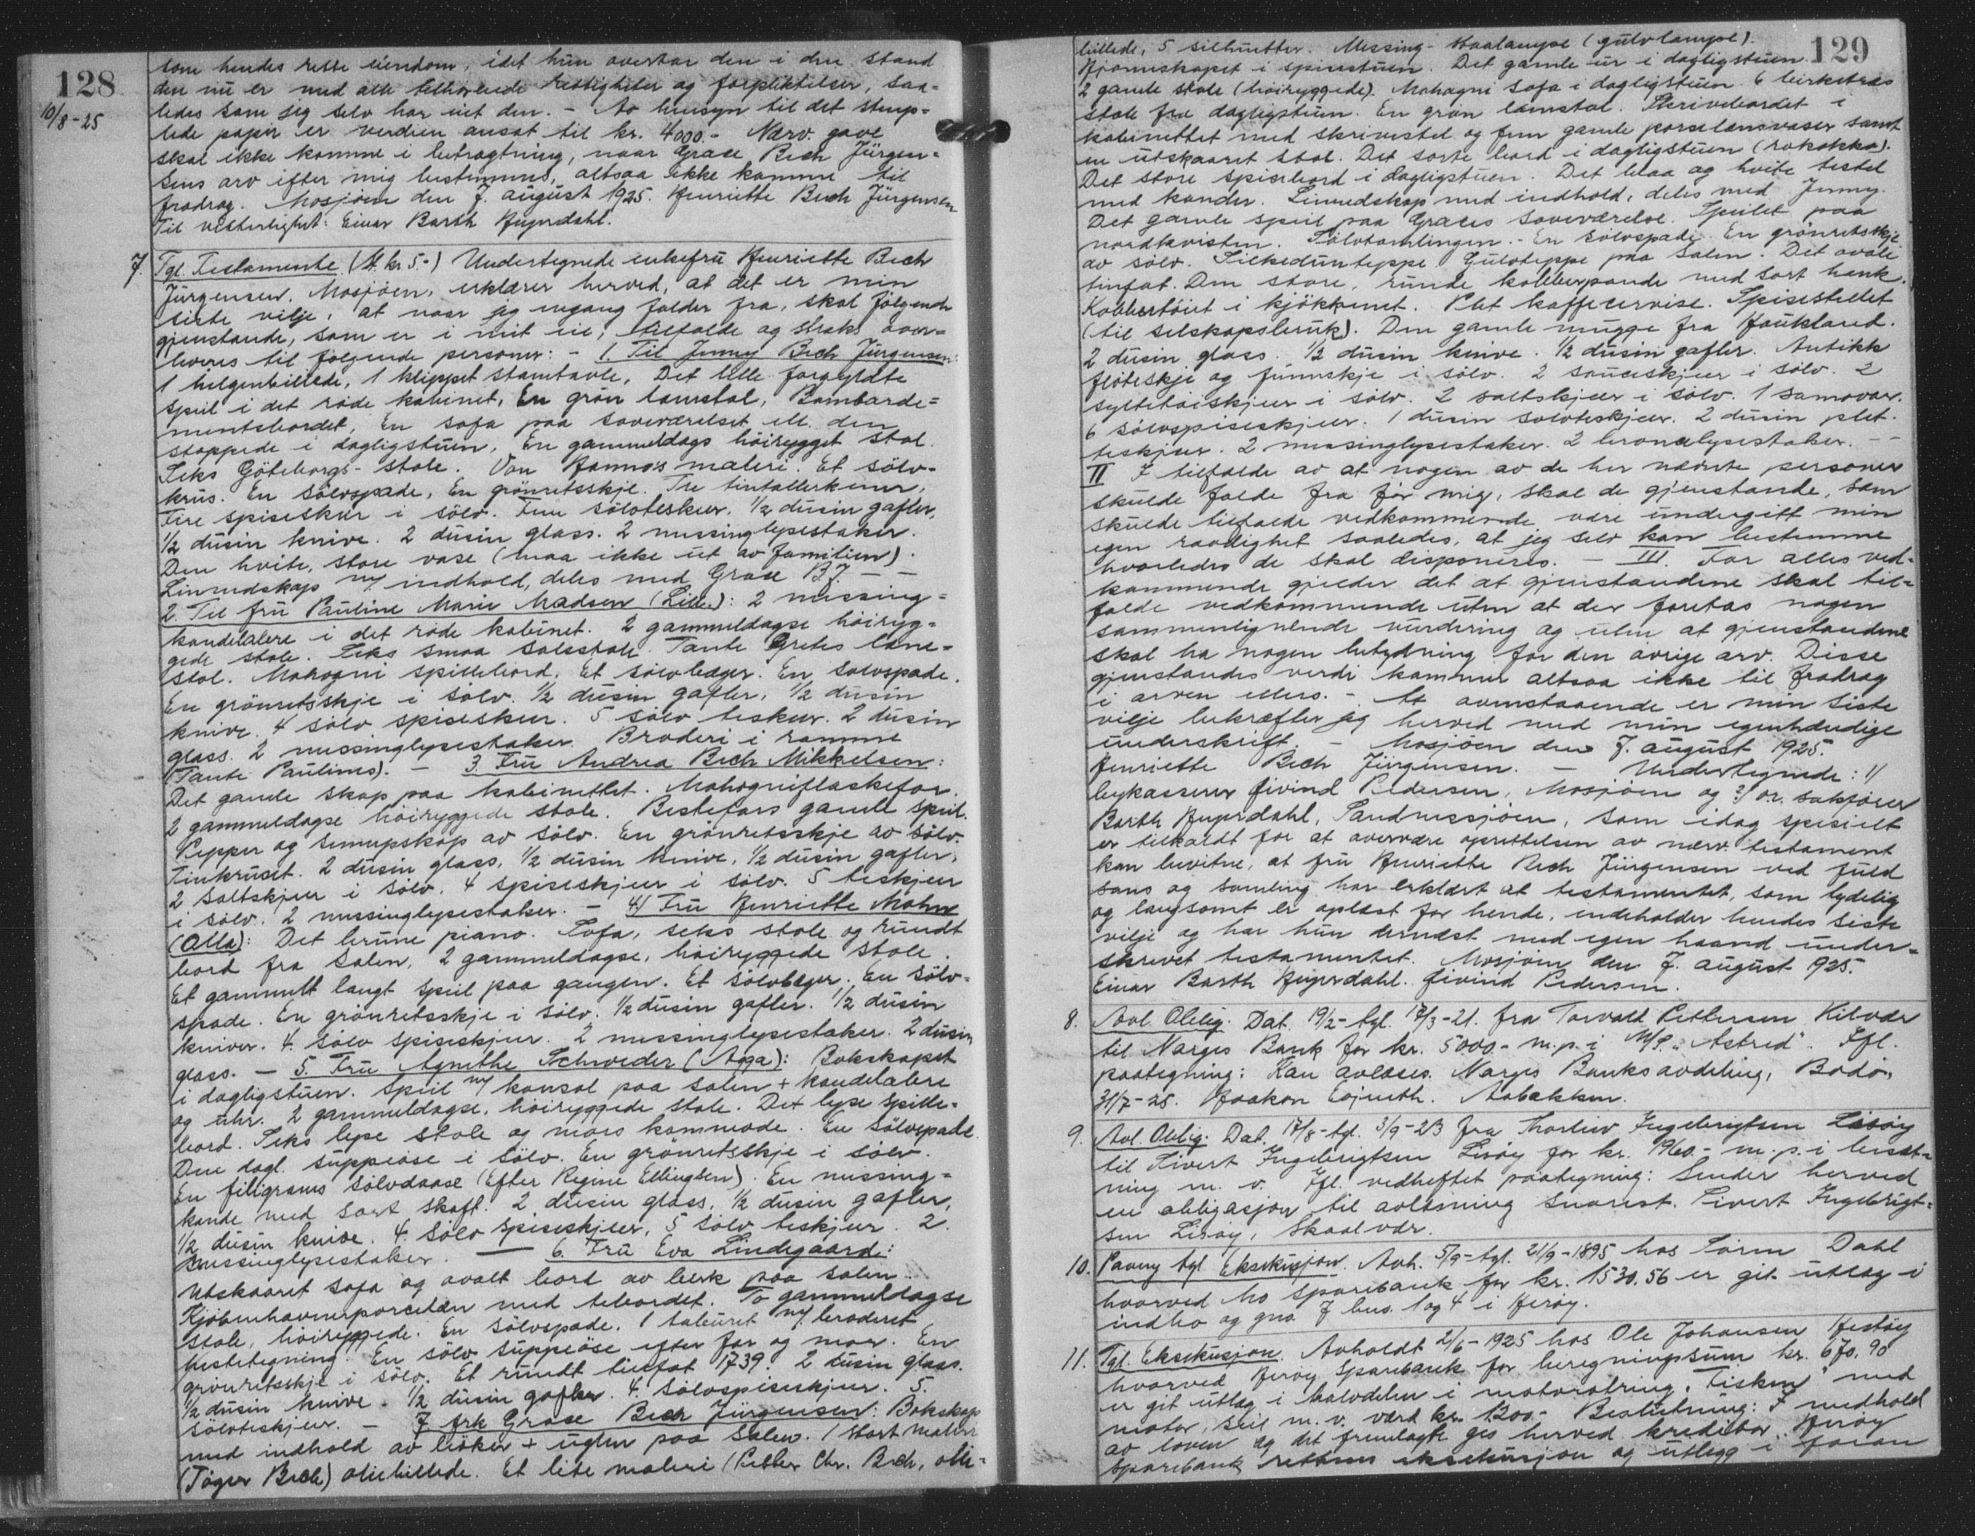 128
10/8-25
som hendes rette eiendom, idet hun overtar den i den stand
den nu er med alle tilhørende rettigheter og forpliktelser, saa-
ledes som jeg selv har eiet den. - Av hensyn til det stemp-
lede papir er verdien ansat til kr. 4000.- Nærv. gave
skal ikke komme i betragtning, naar Grace Bech Jürgen-
sens arv efter mig bestemmes, altsaa ikke komme til
fradrag. Mosjøen den 7. august 1925. Henriette Bech Jürgensen
Til vitterlighet: Einar Barth Heyerdahl.
7. Tgl. Testamente (St. kr. 5.-) Undertegnede enkefru Henriette Bech
Jürgensen, Mosjøen, erklærer herved, at det er min
siste vilje, at naar jeg engang falder fra, skal følgende
gjenstande, som er i mit eie, tilfalde og straks over-
leveres til følgende personer: - 1. Til Jenny Bech Jürgensen:
1 helgenbillede, 1 klippet stamtavle, Det lille forgyldte
speil i det røde kabinet, En grøn lænstol, Bombarde-
mentsbordet, En sofa paa soveværelset ell. den
stoppede i dagligstuen, En gammeldags høirygget stol.
Seks Göteborgs-stole. Von Hannos maleri. Et sølv-
krus. En sølvspade, En grøntretsskje. Tre tintallerkener,
Fire spiseskeer i sølv. Fem sølvteskeer. 1/2 dusin gafler,
1/2 dusin knive. 2 dusin glass. 2 messinglysestaker.
Den hvite, store vase (maa ikke ut av familien).
Linnedskap m/ indhold, deles med Grace B.J. - -
2. Til fru Pauline Marie Madsen (Lille): 2 messing-
kandelabere i det røde kabinet. 2 gammeldagse høiryg-
gede stole. Seks smaa salsstole. Tante Gretes læne-
stol. Mahogni spillebord. Et sølvbæger. En sølvspade.
En grønretsskje i sølv. 1/2 dusin gafler, 1/2 dusin
knive. 4 sølv spiseskeer. 5 sølv teskeer. 2 dusin
glass. 2 messinglysestaker. Broderi i ramme
(Tante Paulines). - 3. Fru Andrea Bech Mikkelsen:
Det gamle skap paa kabinettet. Mahogniflaskefor.
2 gammeldagse høiryggede stole. Bestefars gamle speil.
Pepper og sennepskop av sølv. En grønretsskje av sølv.
Tinkruset. 2 dusin glass, 1/2 dusin knive, 1/2 dusin gafler,
2 saltskjeer i sølv. 4 spiseskjeer i sølv. 5 teskjeer
i sølv. 2 messinglysestaker. - 4) Fru Henriette Mohn
(Alla): Det brune piano. Sofa, seks stole og rundt
bord fra salen, 2 gammeldagse, høiryggede stole.
Et gammelt langt speil paa gangen. Et sølvbæger. En sølv-
spade. En grønretsskje i sølv. 1/2 dusin gafler. 1/2 dusin
kniver. 4 sølv spiseskjeer. 2 messinglysestaker. 2 dusin
glass. - 5. Fru Agnethe Schweder (Agga): Bokskapet
i dagligstuen. Speil m/ konsol paa salen + kandelabere
og uhr. 2 gammeldagse, høiryggede stole. Det lyse spille-
bord. Seks lyse stole og mors kommode. En sølvspade.
Den dagl. suppeøse i sølv. En grønretsskje i sølv.
En filigrams sølvdaase (Efter Regine Ellingsen). En messing-
kande med sort skaft. 2 dusin glass, 1/2 dusin gafler,
1/2 dusin knive. 4 sølv spiseskjeer, 5 sølv teskjeer. 2
messinglysestaker. - 6. Fru Eva Lindegaard:
Utskaaret sofa og ovalt bord av bjerk paa salen.
Kjøbenhavnerporcelæn med tebordet. To gammeldagse
stole, høiryggede. En sølvspade. 1 taburet m/ broderet
hestetegning. En sølv suppeøse efter far og mor. En
grønretsskje i sølv. Et rundt tinfat 1739. 2 dusin glass.
1/2 dusin knive. 1/2 dusin gafler. 4 sølvspiseskjeer. 5
sølvteskjeer. - 7. frk Grace Bech Jürgensen: Bokskap
med indhold av bøker + uglen paa salen. 1 stort maleri
(Tøger Bech) oliebillede. Et lite maleri (Petter Chr. Bech, olie-
129
billede, 5 silhuetter. Messing-staalampe (gulvlampe).
Hjørneskapet i spisestuen. Det gamle ur i dagligstuen.
2 gamle stole (høiryggede). Mahogni sofa i dagligstuen 6 birketræs
stole fra dagligstuen. En grøn lænstol. Skrivebordet i
kabinettet med skrivestel og fem gamle porselænsvaser samt
en utskaaret stol. Det sorte bord i dagligstuen (rokokko).
Det store spisebord i dagligstuen. Det blaa og hvite testel
med kander. Linnedskap med indhold, deles med Jenny.
Det gamle speil paa Graces soveværelse. Speilet paa
nordkvisten. Sølvsamlingen. - En sølvspade. En grønretsskje
av sølv. Silkedunteppe. Gulvteppe paa salen. Det ovale
tinfat. Den store, runde kobberpande med sort hank.
Kobbertøiet i kjøkkenet. Plet kaffeservise. Spisestellet
(til selskapsbruk). Den gamle mugge fra Haukland.
2 dusin glass. 1/2 dusin knive. 1/2 dusin gafler. Antikk
fløteskje og finnskje i sølv. 2 sauceskjeer i sølv. 2
syltetøiskjeer i sølv. 2 saltskjeer i sølv. 1 samovar.
6 sølvspiseskjeer. 1 dusin sølvteskjeer. 2 dusin plet
teskjeer. 2 messinglysestaker. 2 broncelysestaker. - -
II I tilfælde av at nogen av de her nævnte personer
skulde falde fra før mig, skal de gjenstande, som
skulde tilfalde vedkommende, være undergitt min
egen raadighet saaledes, at jeg selv kan bestemme
hvorledes de skal disponeres. - III. For alles ved-
kommende gjelder det at gjenstandene skal til-
falde vedkommende uten at der foretas nogen
sammenlignende vurdering og uten at gjenstandene
skal ha nogen betydning for den øvrige arv. Disse
gjenstandes verdi kommer altsaa ikke til fradrag
i arven ellers. - At ovenstaaende er min siste
vilje bekræfter jeg herved med min egenhændige
underskrift. - Mosjøen den 7. august 1925.
Henriette Bech Jürgensen. - Undertegnede: 1/
bykasserer Eivind Pedersen, Mosjøen og 2/ or. sakfører
Barth Heyerdahl, Sandnessjøen, som idag spesielt
er tilkaldt for at overvære oprettelsen av nærv. testament
kan bevitne, at fru Henriette Bech Jürgensen ved fuld
sans og samling har erklært at testamentet, som tydelig
og langsomt er oplæst for hende, indeholder hendes siste
vilje og har hun dernæst med egen haand under-
skrevet testamentet. Mosjøen den 7. august 1925.
Einar Barth Heyerdahl. Eivind Pedersen.
8. Avl. Oblig. Dat. 19/2-tgl. 17/3-21. fra Torvald Pettersen Kilvær
til Norges Bank for kr. 5000.- m.p. i M/S. "Astrid". Ifl.
paategning: Kan avløses. Norges Banks avdeling, Bodø,
31/7-25. Haakon Ejneth. Aabakken.
9. Avl. Oblig. Dat. 17/8-tgl. 3/9-23 fra Thorleiv Ingebrigtsen Lisøy
til Sivert Ingebrigtsen Lisøy for kr. 1960.- m. p. i besæt-
ning m. v. Ifl. vedheftet paategning: Sender herved
en obligasjon til avlæsning snarest. Sivert Ingebrigt-
sen Lisøy, Skaalvær.
10. Paany tgl. Eksekusjon. Avh. 5/9-tgl. 21/9-1895 hos Søren Dahl
hvorved Mo Sparebank for kr. 1530.56 er git utlæg i
indbo og gno. 7 bno. 1 og 4 i Herøy.
11. Tgl. Eksekusjon. Avholdt 2/6-1925 hos Ole Johansen Hestøy
hvorved Herøy Sparebank for beregningssum kr. 670.90
er git utlæg i halvdelen i motorolring. "Fisken" med
motor, seil m. v. værd kr. 1300.- Beslutning: I medhold
av loven og det fremlagte ges herved kreditor Herøy
Sparebank rettens eksekusjon og utlegg i foran